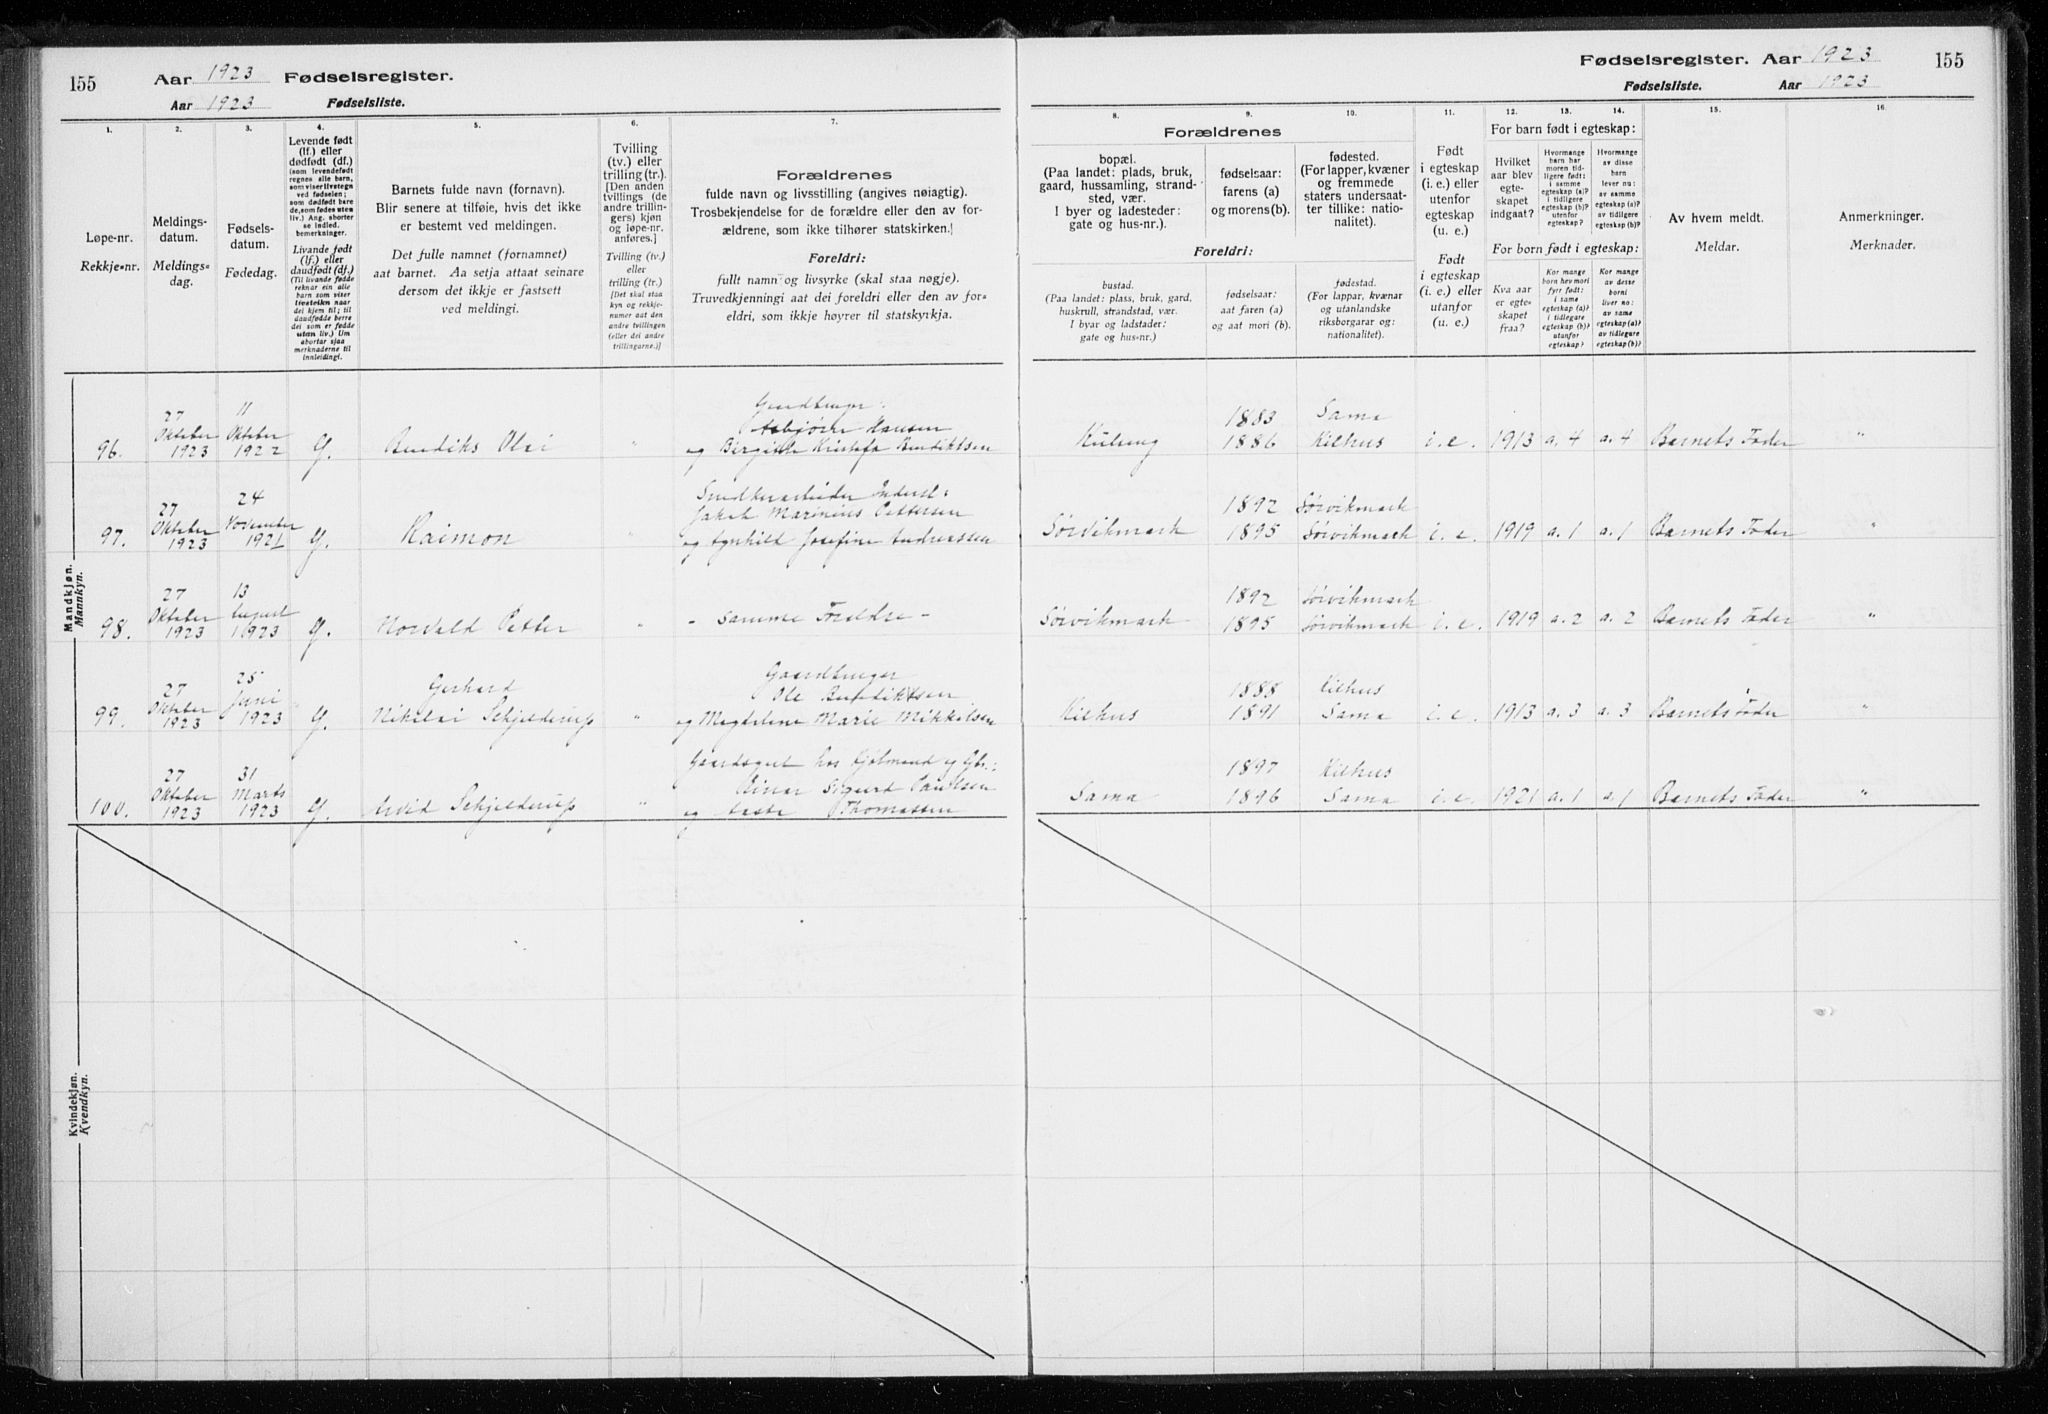 155
Aar 1923 Fødselsregister.
Aar 1923 Fødselsliste.
1.
2.
3.
4.
5.
6.
7.
Løpe-nr.
Rekkje-nr.
Meldings-
datum.
Meldings-
dag.
Fødsels-
datum.
Fødedag.
Levende født
(lf.) eller
dødfødt (df.)
(som levendefødt
regnes alle barn,
som viser livstegn
ved fødselen;
som dødfødt bare
de, som fødes uten
liv.) Ang. aborter
se indled.
bemerkninger.
Livande født
(lf.) eller
daudfødt (df.)
(Til livande fødde
reknar ein alle
barn som viser
livsteikn naar
dei kjem til; til
daudfødde berre
dei som er fødde
utan liv.) Um
abortar sjaa
merknaderne til
innleidingi.
Barnets fulde navn (fornavn).
Blir senere at tilføie, hvis det ikke
er bestemt ved meldingen.
Det fulle namnet (fornamnet)
aat barnet. Aa setja attaat seinare
dersom det ikkje er fastsett
ved meldingi.
Tvilling
(tv.) eller
trilling (tr.).
[Den anden
tvillings (de
andre trillin-
gers) kjøn
og løpe-nr.
anføres.]
Tvilling (tv.)
eller
trilling (tr.)
[Det skal staa
kyn og rekkje-
numer aat den
andre tvillingen
(eller dei andre
trillingarne.)]
Forældrenes
fulde navn og livsstilling (angives nøiagtig).
Trosbekjendelse for de forældre eller den av for-
ældrene, som ikke tilhører statskirken.
Foreldri:
fullt namn og livsyrke (skal staa nøgje).
Truvedkjenningi aat dei foreldri eller den av for-
eldri, som ikkje høyrer til statskyrkja.
Mandkjøn.
Mannkyn.
96.
27
Oktober
1923
11
Oktober
1922
G.
Bendiks Olai
"
Gaardbruger:
Asbjørn Hansen
og Birgitte Kristofa Bendiktsen
97.
27
Oktober
1923
24
November
1921
G.
Raimon
"
Jakob Marinius Pettersen
og Agnhild Josefine Andreassen
98.
27
Oktober
1923
13
August
1923
G.
Norvald Petter
"
- samme Foreldre -
99.
27
Oktober
1923
25
Juni
1923
G.
Gerhard
Nikolai Schjelderup
"
Gaardbruger
Ole Bendiktsen
og Magdalene Marie Mikkelsen
100.
27
Oktober
1923
31
Marts
1923
G.
Arvid Schjelderup
"
Einar Sigurd Paulsen
og Thomassen
Kvindekjøn.
Kvendkyn.
Fødselsregister. Aar 1923
155
Fødselsliste. Aar 1923
8.
9.
10.
11.
12.
13.
14.
15.
16.
Forældrenes
bopæl.
(Paa landet: plads, bruk,
gaard, hussamling, strand-
sted, vær.
I byer og ladesteder:
gate og hus-nr.).
fødselsaar:
farens (a)
og morens (b).
fødested.
(For lapper, kvæner
og fremmede
staters undersaat-
ter tillike: natio-
nalitet).
Foreldri:
bustad.
(Paa landet: plass, bruk, gard,
huskrull, strandstad, vær.
I byar og ladstader:
gate og hus-nr.)
fødselsaar:
aat faren (a)
og aat mori (b).
fødestad.
(For lappar, kvænar
og utanlandske
riksborgarar: og
nationalitet).
Født
i egteskap
(i. e.) eller
utenfor
egteskap
(u. e.)
Født
i egteskap
(i. e.) eller
utanfor
(u. e.)
For barn født i egteskap:
Hvilket
aar blev
egte-
skapet
indgaat?
Hvormange
barn har
moren tid-
ligere født:
i samme
egteskap (a)?
i tidligere
egteskap (b)?
utenfor
egteskap?
Hvormange
av disse
barn
lever nu:
av samme
egteskap (a)?
av tidligere
egteskap (b)?
For born født i egteskap:
Kva aar
er egte-
skapet
fraa?
Kor mange
born hev mori
fyrr født:
i same
egteskap (a)?
i tidlegare
egteskap (b)?
utanfor
egteskap?
Kor mange
av desse
borni
liver no:
av same
egteskap (a)?
av tidlegare
egteskap (b)?
Av hvem meldt.
Meldar.
Anmerkninger.
Merknader.
1883
1886
Sama
Kilhus
i. e.
1913
a. 4
a. 4
Barnets Fader
"
Sørvikmark
1892
1895
Sørvikmark
Sørvikmark
i. e.
1919
a. 1
a. 1
Barnets Fader
"
Sørvikmark
1892
1895
Sørvikmark
Sørvikmark
i. e.
1919
a. 2
a. 2
Barnets Fader
"
Kilhus
1888
1891
Kilhus
Sama
i. e.
1913
a. 3
a. 3
Barnets Fader
"
Sama
1897
1896
Kilhus
Sama
i. e.
1921
a. 1
a. 1
Barnets Fader
"